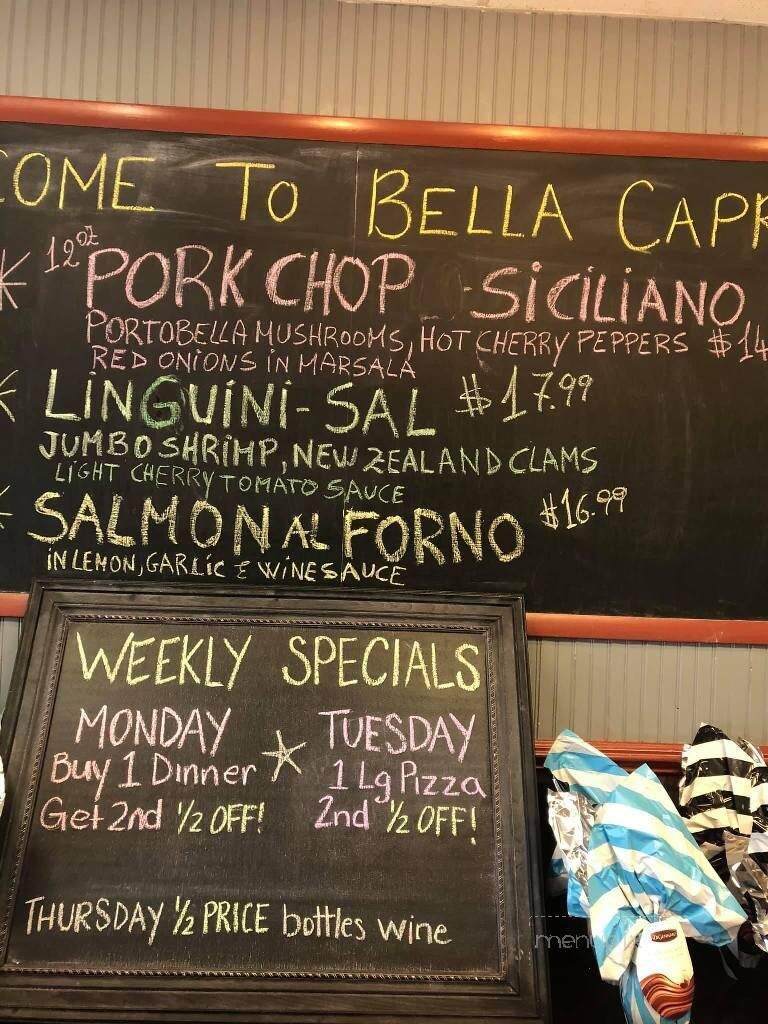 COME TO BELLA CAPR
12oz PORK CHOP - SICILIANO
PORTOBELLA MUSHROOMS, HOT CHERRY PEPPERS $14
RED ONIONS IN MARSALA
LINGUINI-SAL $17.99
JUMBO SHRIMP, NEW ZEALAND CLAMS
LIGHT CHERRY TOMATO SAUCE
SALMON AL FORNO $16.99
IN LEMON, GARLIC & WINE SAUCE
WEEKLY SPECIALS
MONDAY TUESDAY
Buy 1 Dinner 1 Lg Pizza
Get 2nd 1/2 OFF! 2nd 1/2 OFF!
THURSDAY 1/2 PRICE bottles wine